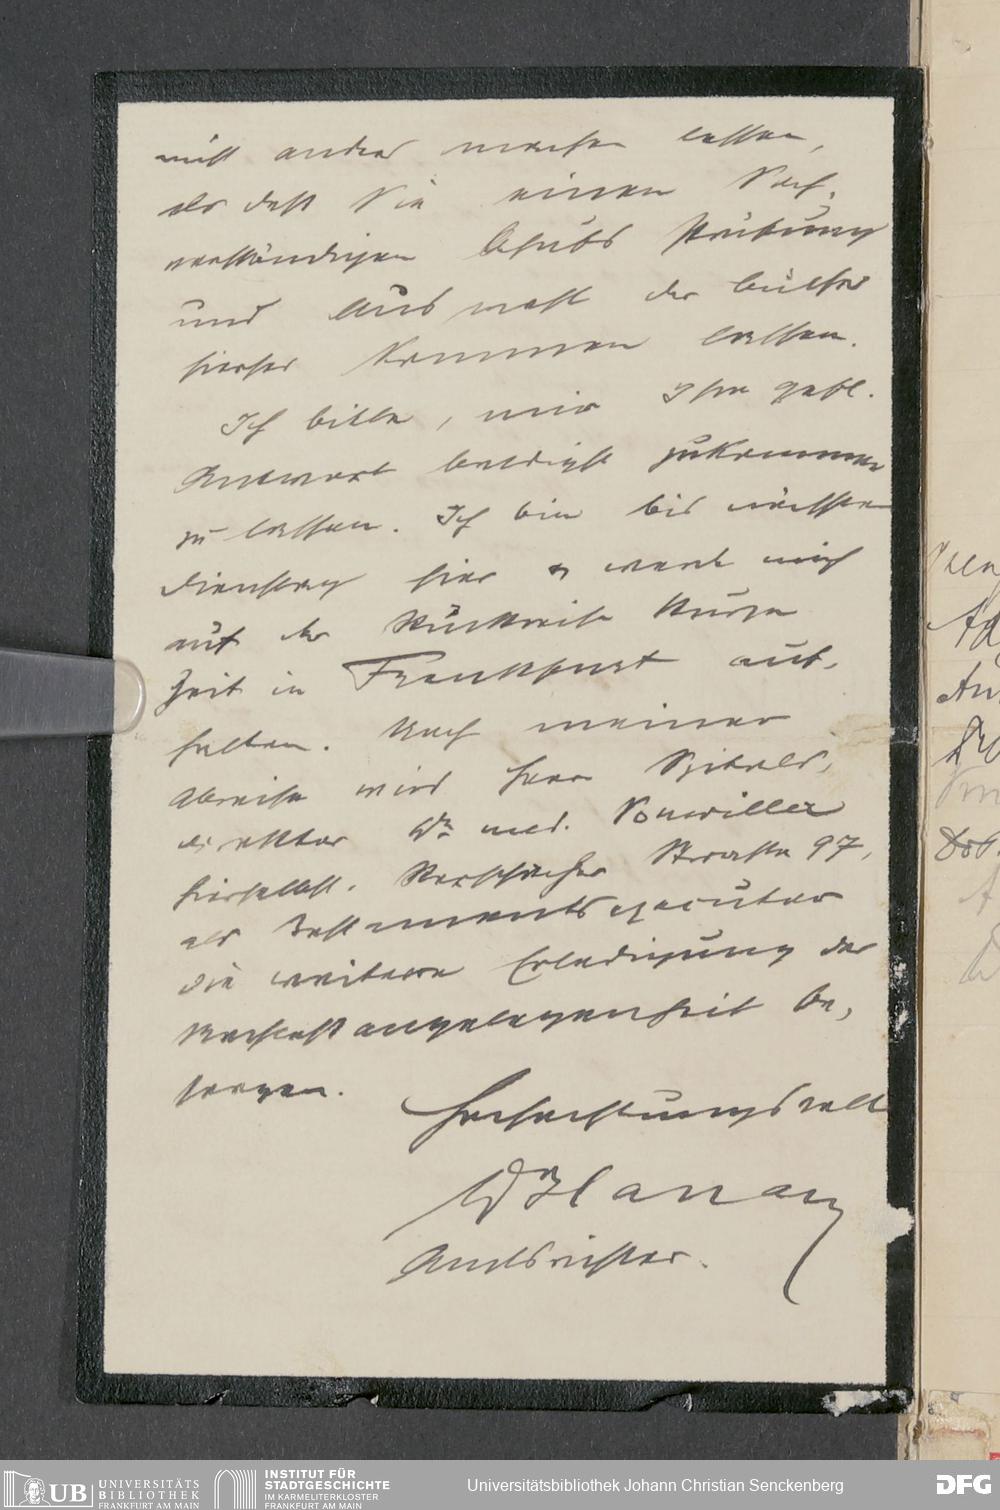 nicht anders machen lassen,
als daß Sie einen Sach-
verständigen behufs Prüfung
und Auswahl der Bücher
hierher kommen lassen.
Ich bitte, mir Ihre gefl.
Antwort baldigst zukommen
zu lassen. Ich bin bis nächsten
Dienstag hier u werde mich
auf der Rückreise kurze
Zeit in Frankfurt auf-
halten. Nach meiner
Abreise wird Herr Spitals-
direktor Dr. med. Vonwiller
hierselbst, Rorschacher Strasse 97,
als Testamentsexecutor
die weitere Erledigung der
Nachlaßangelegenheit be-
sorgen.
Hochachtungsvoll
Dr Hanau
Amtsrichter.
UB UNIVERSITÄTS
BIBLIOTHEK
FRANKFURT AM MAIN
INSTITUT FÜR
STADTGESCHICHTE
IM KARMELITERKLOSTER
FRANKFURT AM MAIN
Universitätsbibliothek Johann Christian Senckenberg
DFG